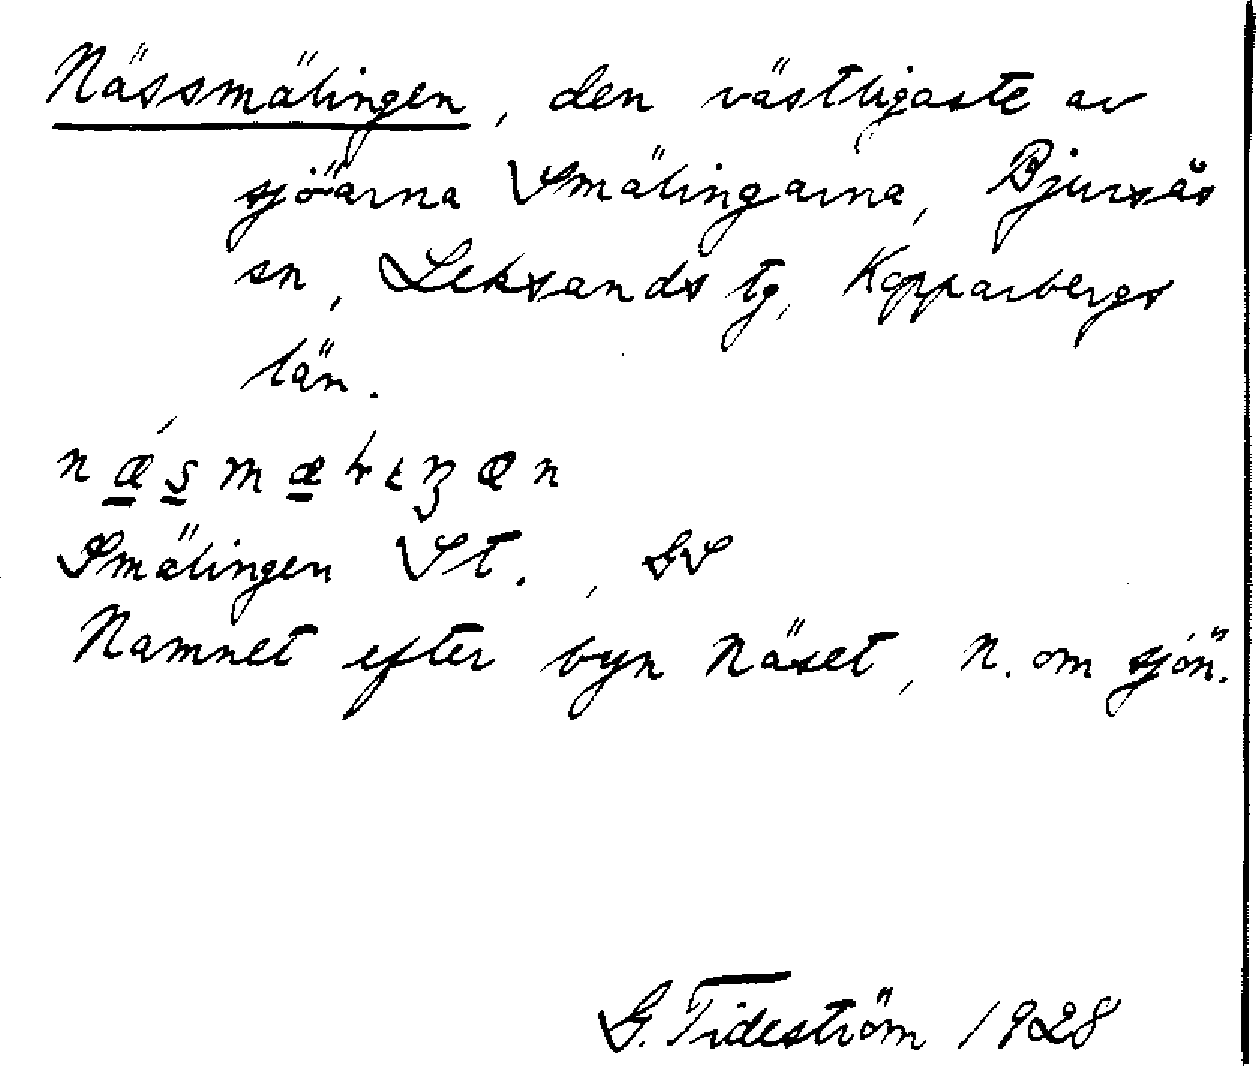 Nässmälingen, den västligaste av
sjöarna Smälingarna, Bjursås
sn, Leksands tg, Kopparbergs
län.
Smälingen St., SV
Namnet efter byn Näset, N. om sjön.
G. Tideström 1928